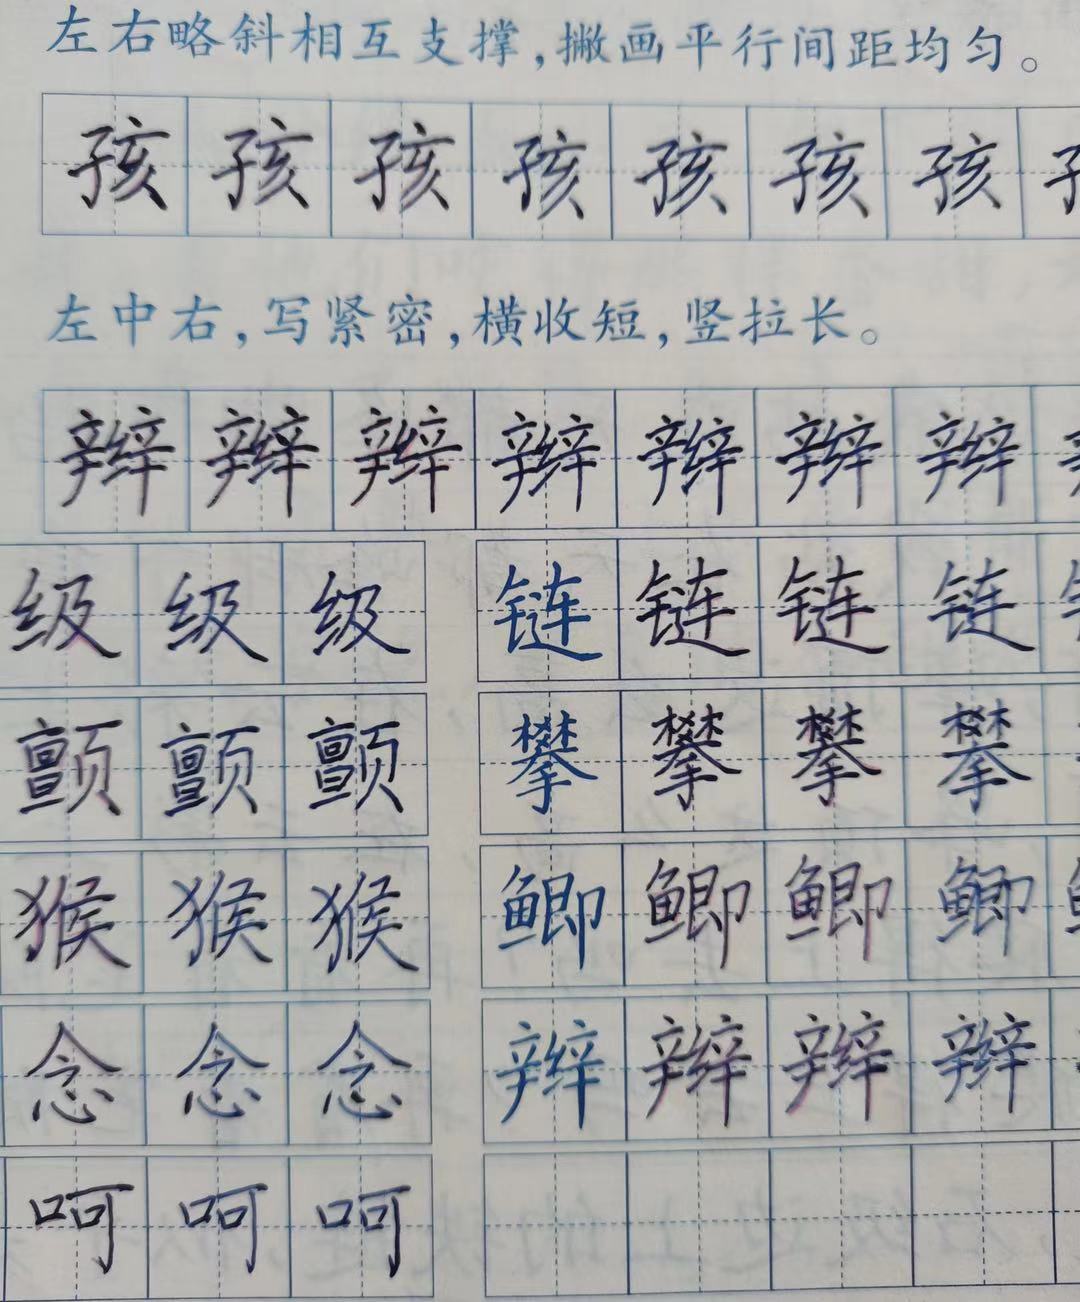 左右略斜相互支撑,撇画平行间距均匀。
孩孩孩孩孩孩孩
左中右,写紧密,横收短,竖拉长。
辫辫辫辫辫辫辫
级级级 链链链链
颤颤颤 攀攀攀攀
猴猴猴 鲫鲫鲫鲫
念念念 辫辫辫辫
呵呵呵